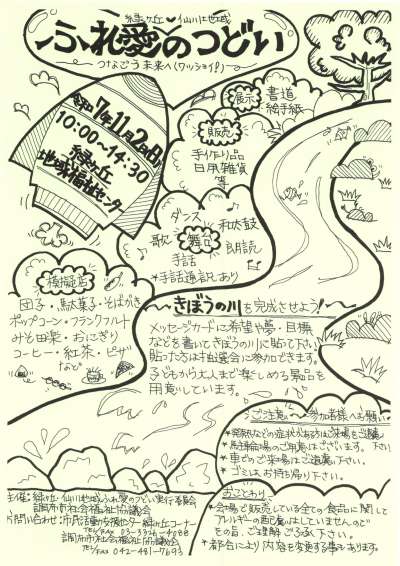 緑ヶ丘♥仙川地域
ふれ愛のつどい
～つなごう未来へ(ワッショイ!)～
令和7年11月2日(日)
10:00～14:30
緑ヶ丘
地域福祉センター
展示
書道
絵手紙
販売
手作り品
日用雑貨
等
ダンス
歌
舞台
和太鼓
朗読
手話
*手話通訳あり
模擬店
団子・駄菓子・そばがき
ポップコーン・フランクフルト
みそ田楽・おにぎり
コーヒー・紅茶・ピザ
など
～きぼうの川を完成させよう!～
メッセージカードに希望や夢・目標
などを書いてきぼうの川に貼って下さい
貼った方は抽選会に参加できます。
子どもから大人まで楽しめる景品を
用意しています。
ご注意 参加者様へお願い
*発熱などの症状がある方は来場をご遠慮
下さい
*駐輪場のご用意はございます。
*車でのご来場はご遠慮下さい。
*ゴミはお持ち帰り下さい。
おことわり
*会場で販売している全ての食品に関して
アレルギーの配慮はしていませんので
その旨、ご理解ご了承下さい。
*都合により内容を変更する事もあります。
主催:緑ヶ丘・仙川地域ふれ愛のつどい実行委員会
調布市社会福祉協議会
問い合わせ:市民活動支援センター緑ヶ丘コーナー
TEL/FAX
調布市社会福祉協議会
TEL/FAX 042-481-7693